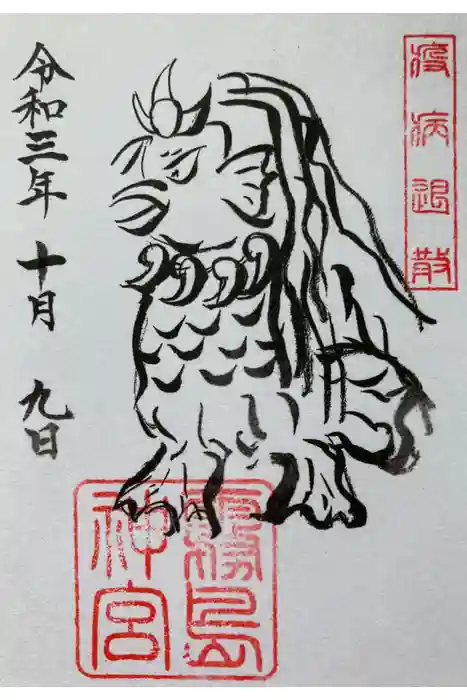 疫病退散
令和三年 十月 九日
霧島
神宮